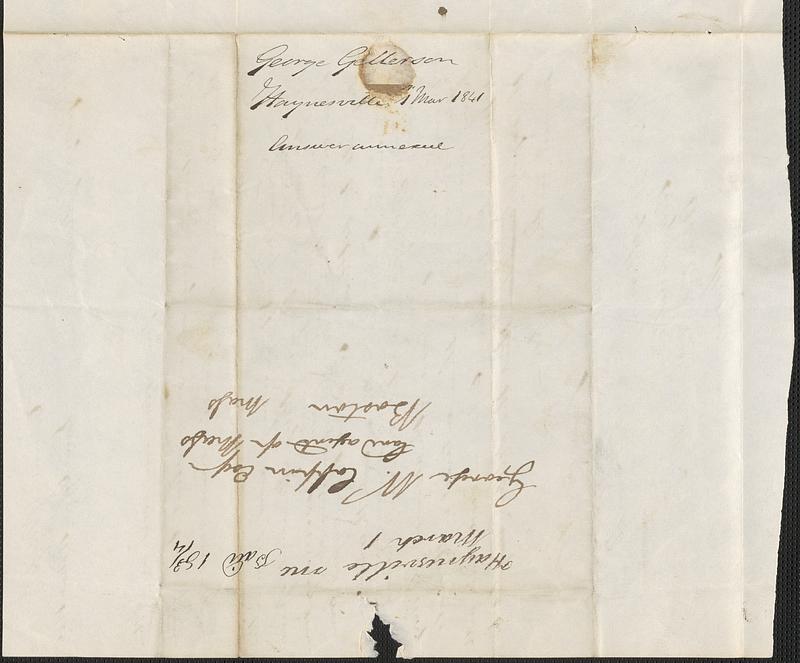 George Gellerson
Haynesville 1st Mar 1841
Answer annexed
Haynesville me Paid 18 3/4
March 1
George W. Coffin Esqr
Land agent of Mass
Boston Mass